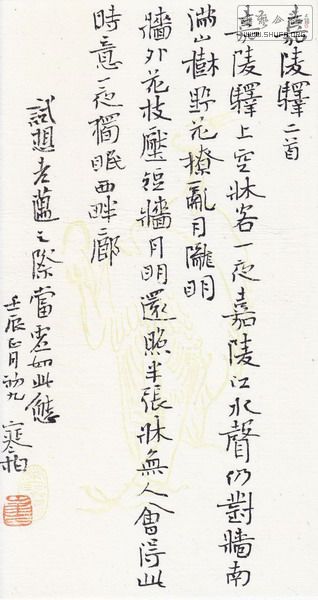 嘉陵驛二首
嘉陵驛上空牀客一夜嘉陵江水聲仍對牆南
滿山樹野花撩亂月朧明
牆外花枝壓短牆月明還照半張牀無人會得此
時意一夜獨眠西畔廊
試想老之際當如此態
壬辰正月初九 寒柏